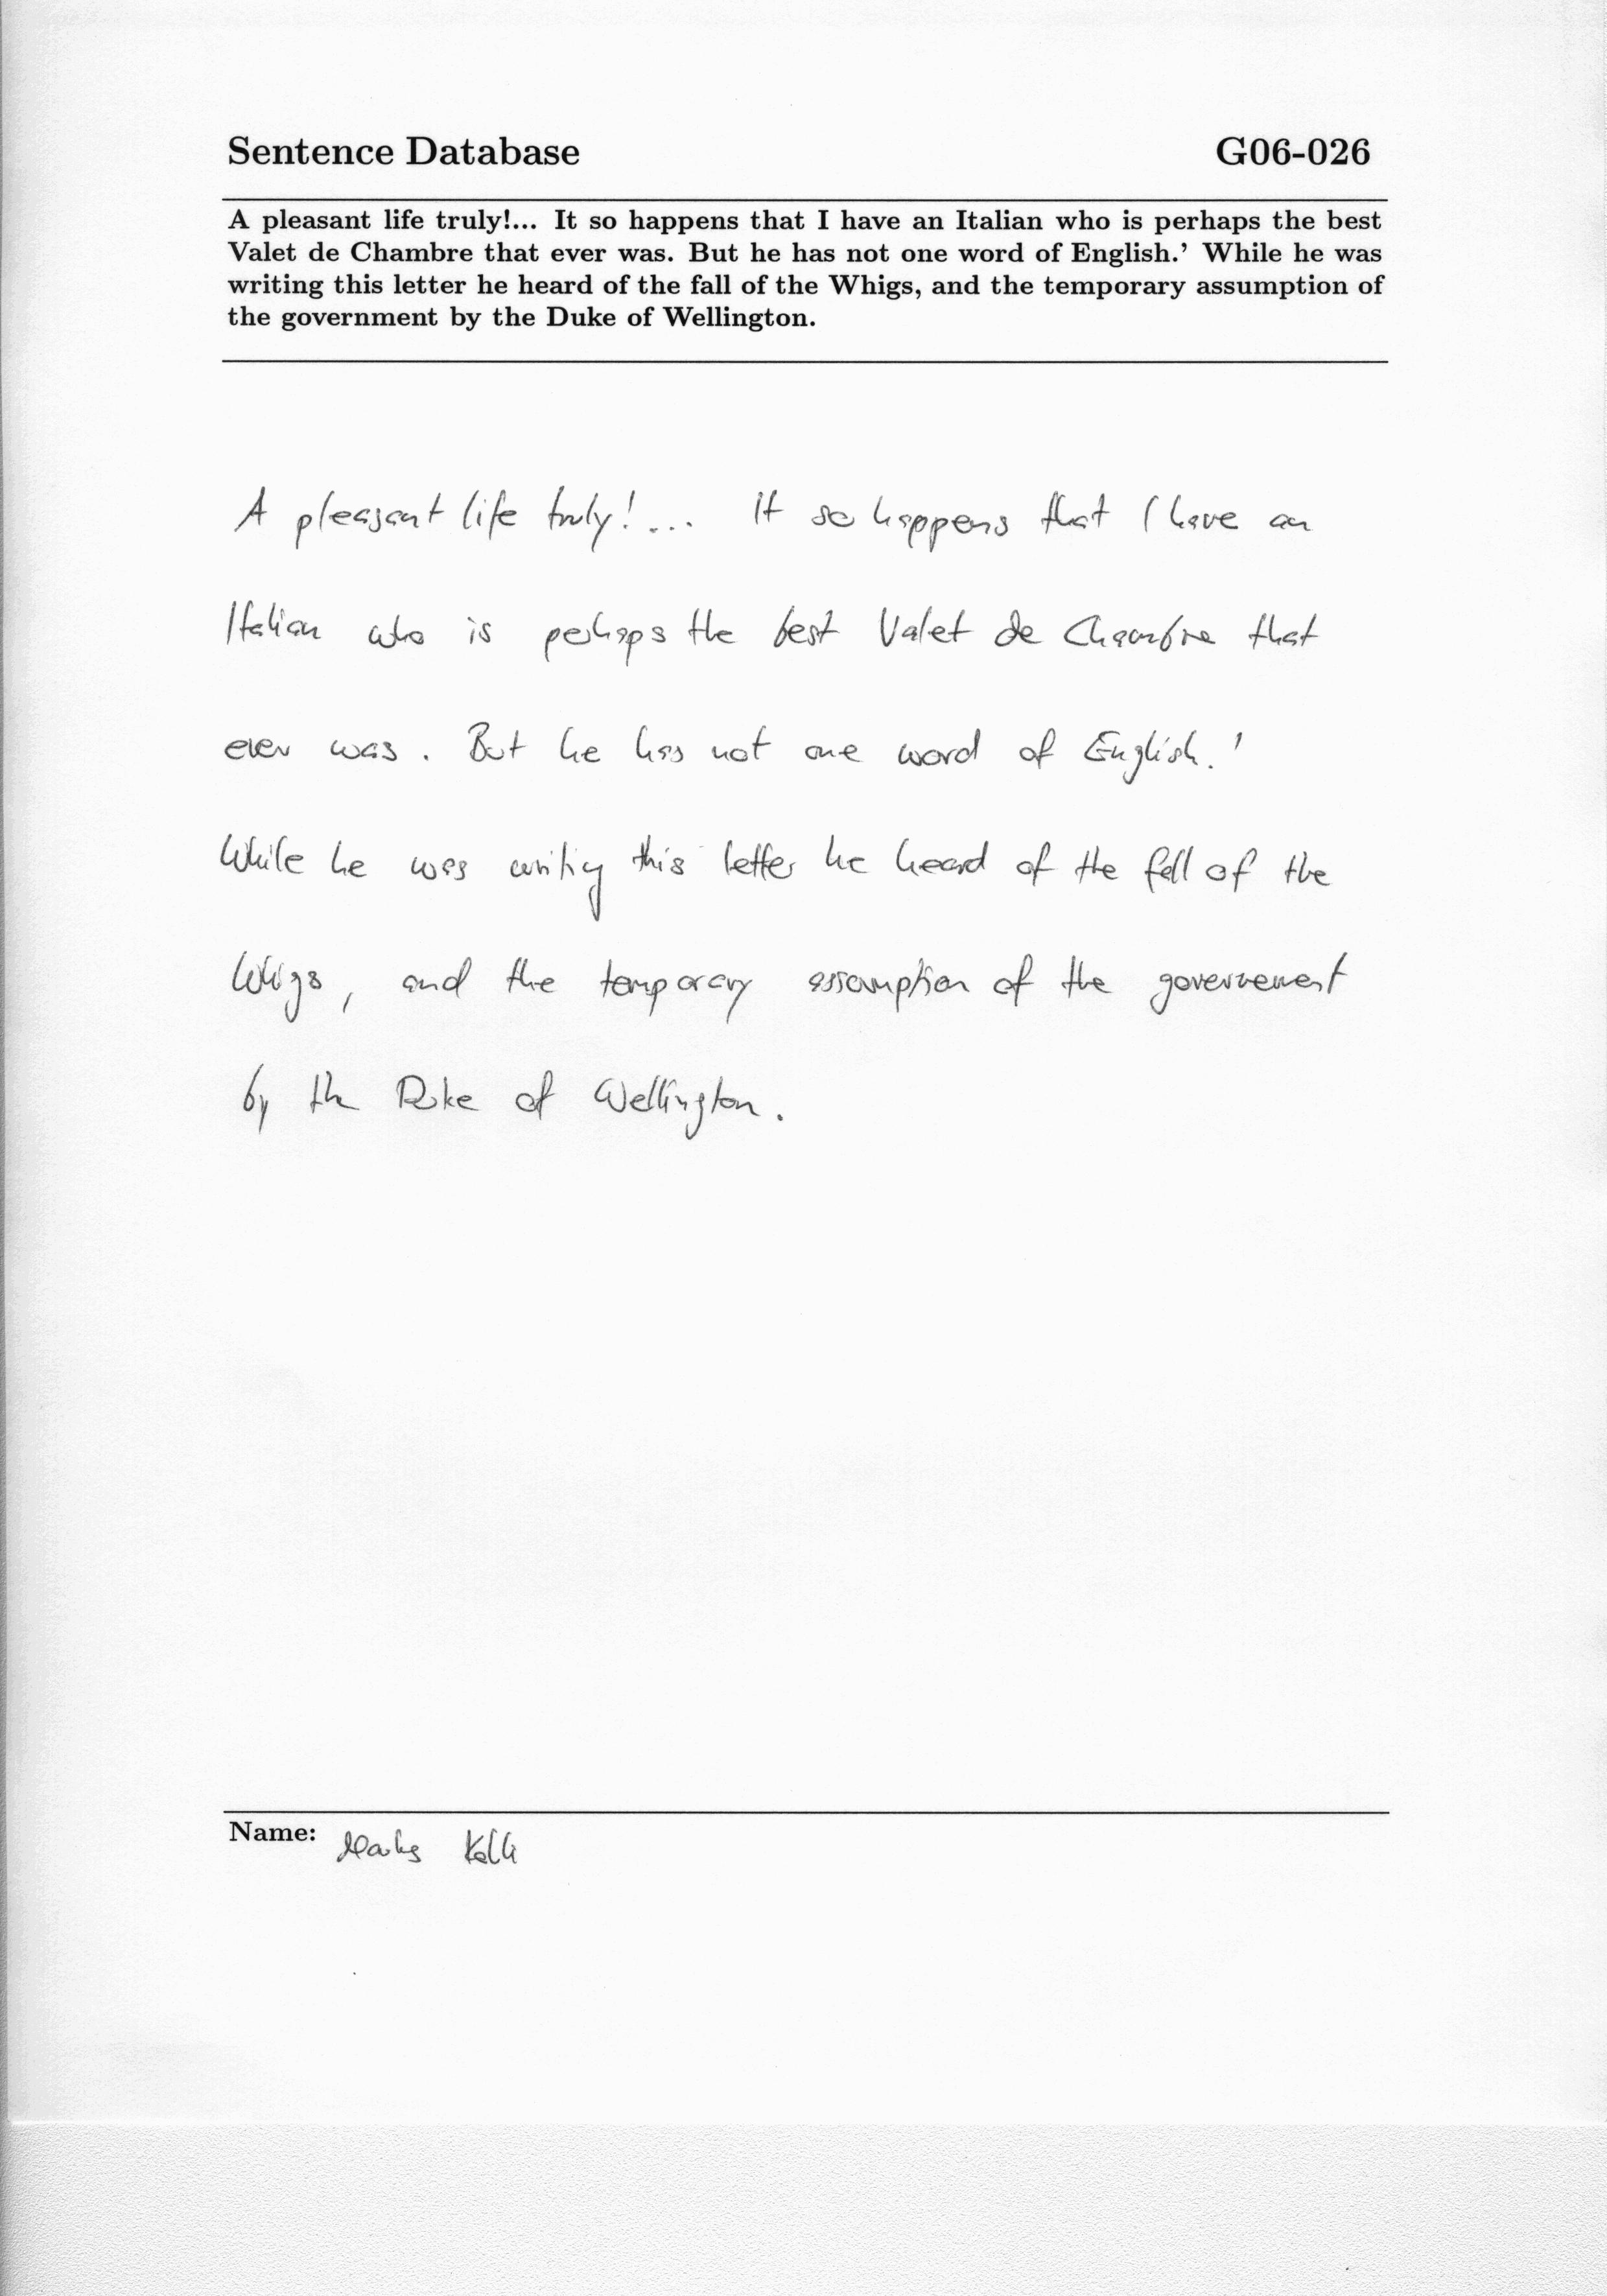 Sentence Database G06-026
A pleasant life truly!... It so happens that I have an Italian who is perhaps the best
Valet de Chambre that ever was. But he has not one word of English.' While he was
writing this letter he heard of the fall of the Whigs, and the temporary assumption of
the government by the Duke of Wellington.
A pleasant life truly!... It so happens that I have an
Italian who is perhaps the best Valet de Chambre that
ever was. But he has not one word of English.'
While he was writing this letter he heard of the fall of the
Whigs, and the temporary assumption of the government
by the Duke of Wellington.
Name: